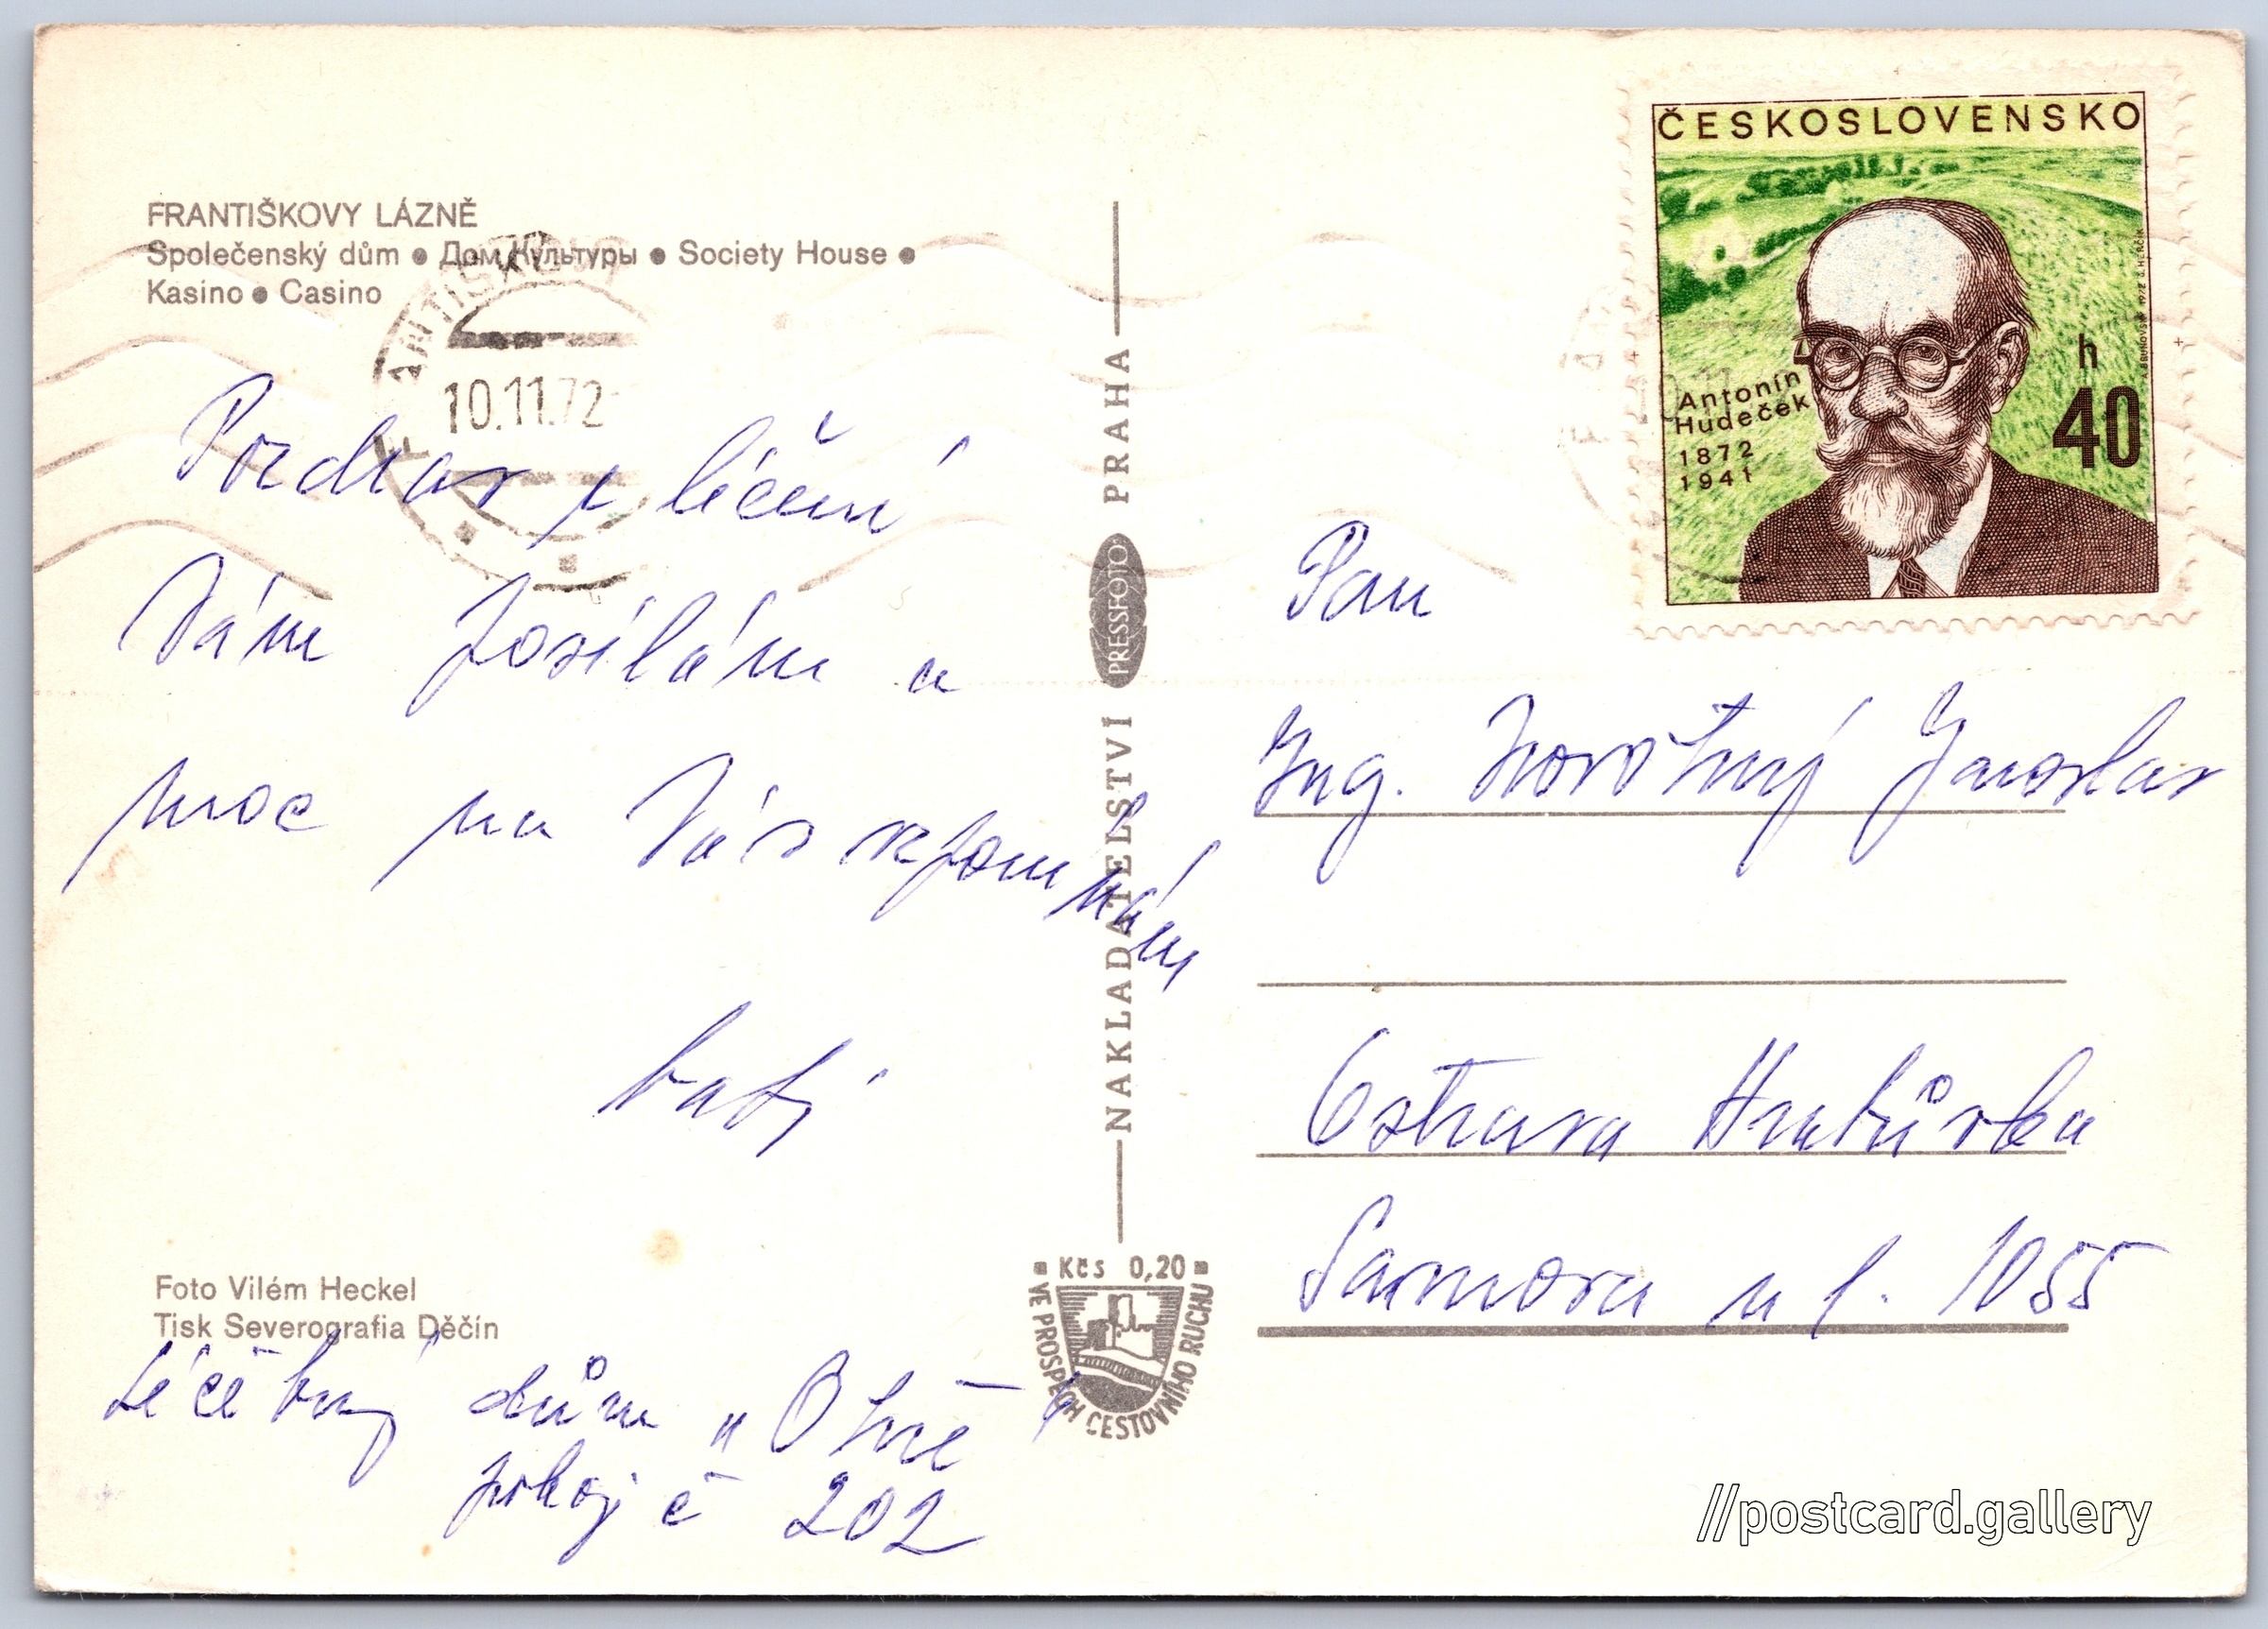 FRANTIŠKOVY LÁZNĚ
Společenský dům ● Дом Культуры ● Society House ●
Kasino ● Casino
10.11.72
Pozdrav z léčení
Vám posílám a
moc na Vás vzpomínám
Léčebný dům "Otné"
pokoj č 202
Foto Vilém Heckel
Tisk Severografia Děčín
NAKLADATELSTVÍ PRESSFOTO PRAHA
Kčs 0,20
VE PROSPĚCH CESTOVNÍHO RUCHU
ČESKOSLOVENSKO
Antonín
Hudeček
1872
1941
h
40
Pan
Ing. Novotný Jaroslav
Ostrava Hrabůvka
Samova ul. 1055
//postcard.gallery